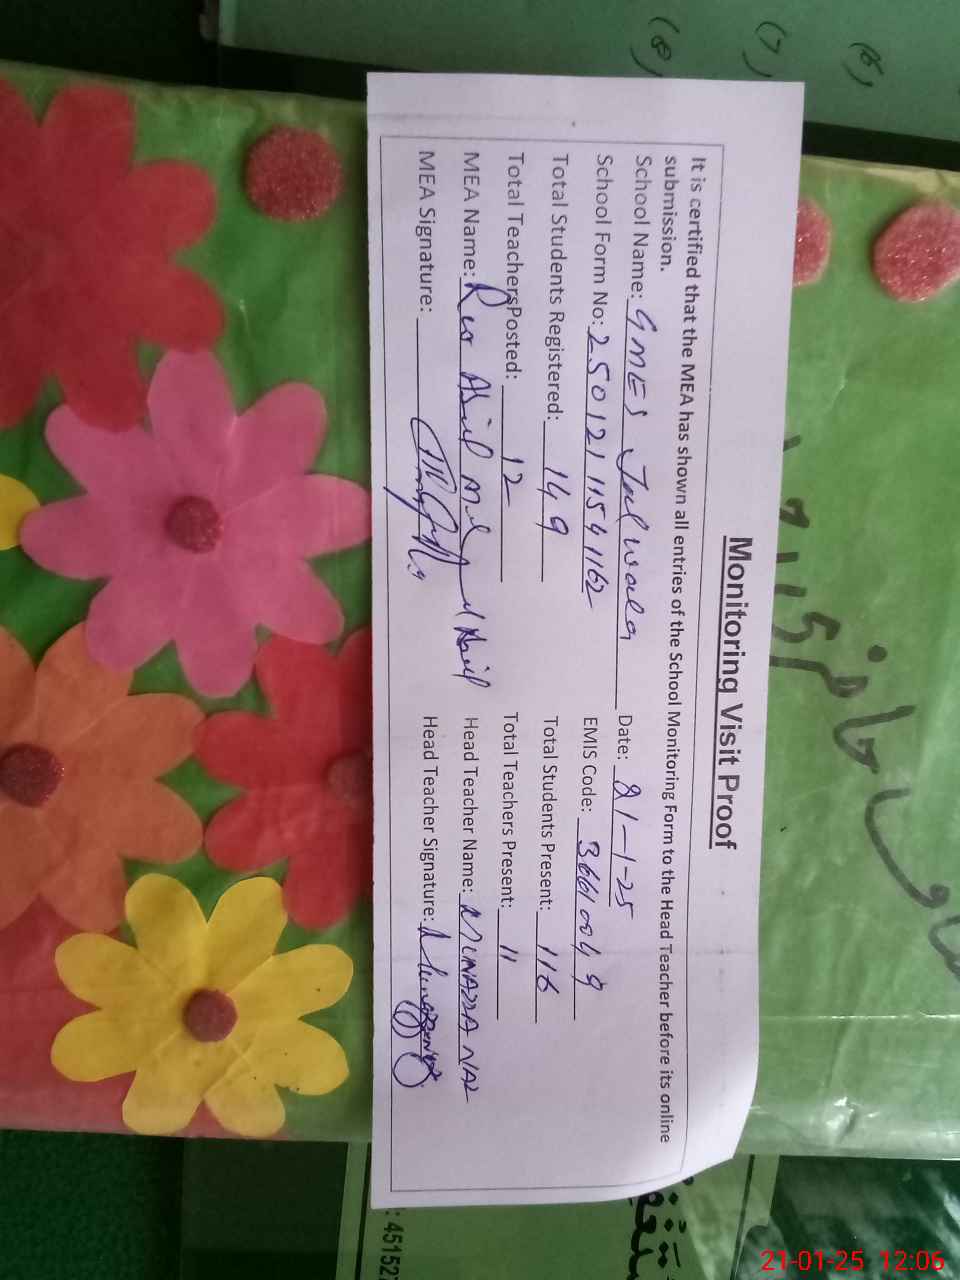 Monitoring Visit Proof
It is certified that the MEA has shown all entries of the School Monitoring Form to the Head Teacher before its online
submission.
School Name: GMES Jalwala Date: 21-1-25
School Form No: 25012111541162 EMIS Code: 36610049
Total Students Registered: 149 Total Students Present: 116
Total TeachersPosted: 12 Total Teachers Present: 11
MEA Name: Rao Head Teacher Name: MUNAZZA NAZ
MEA Signature: Head Teacher Signature:
(6)
(7)
(8)
: 45152
21-01-25 12:06